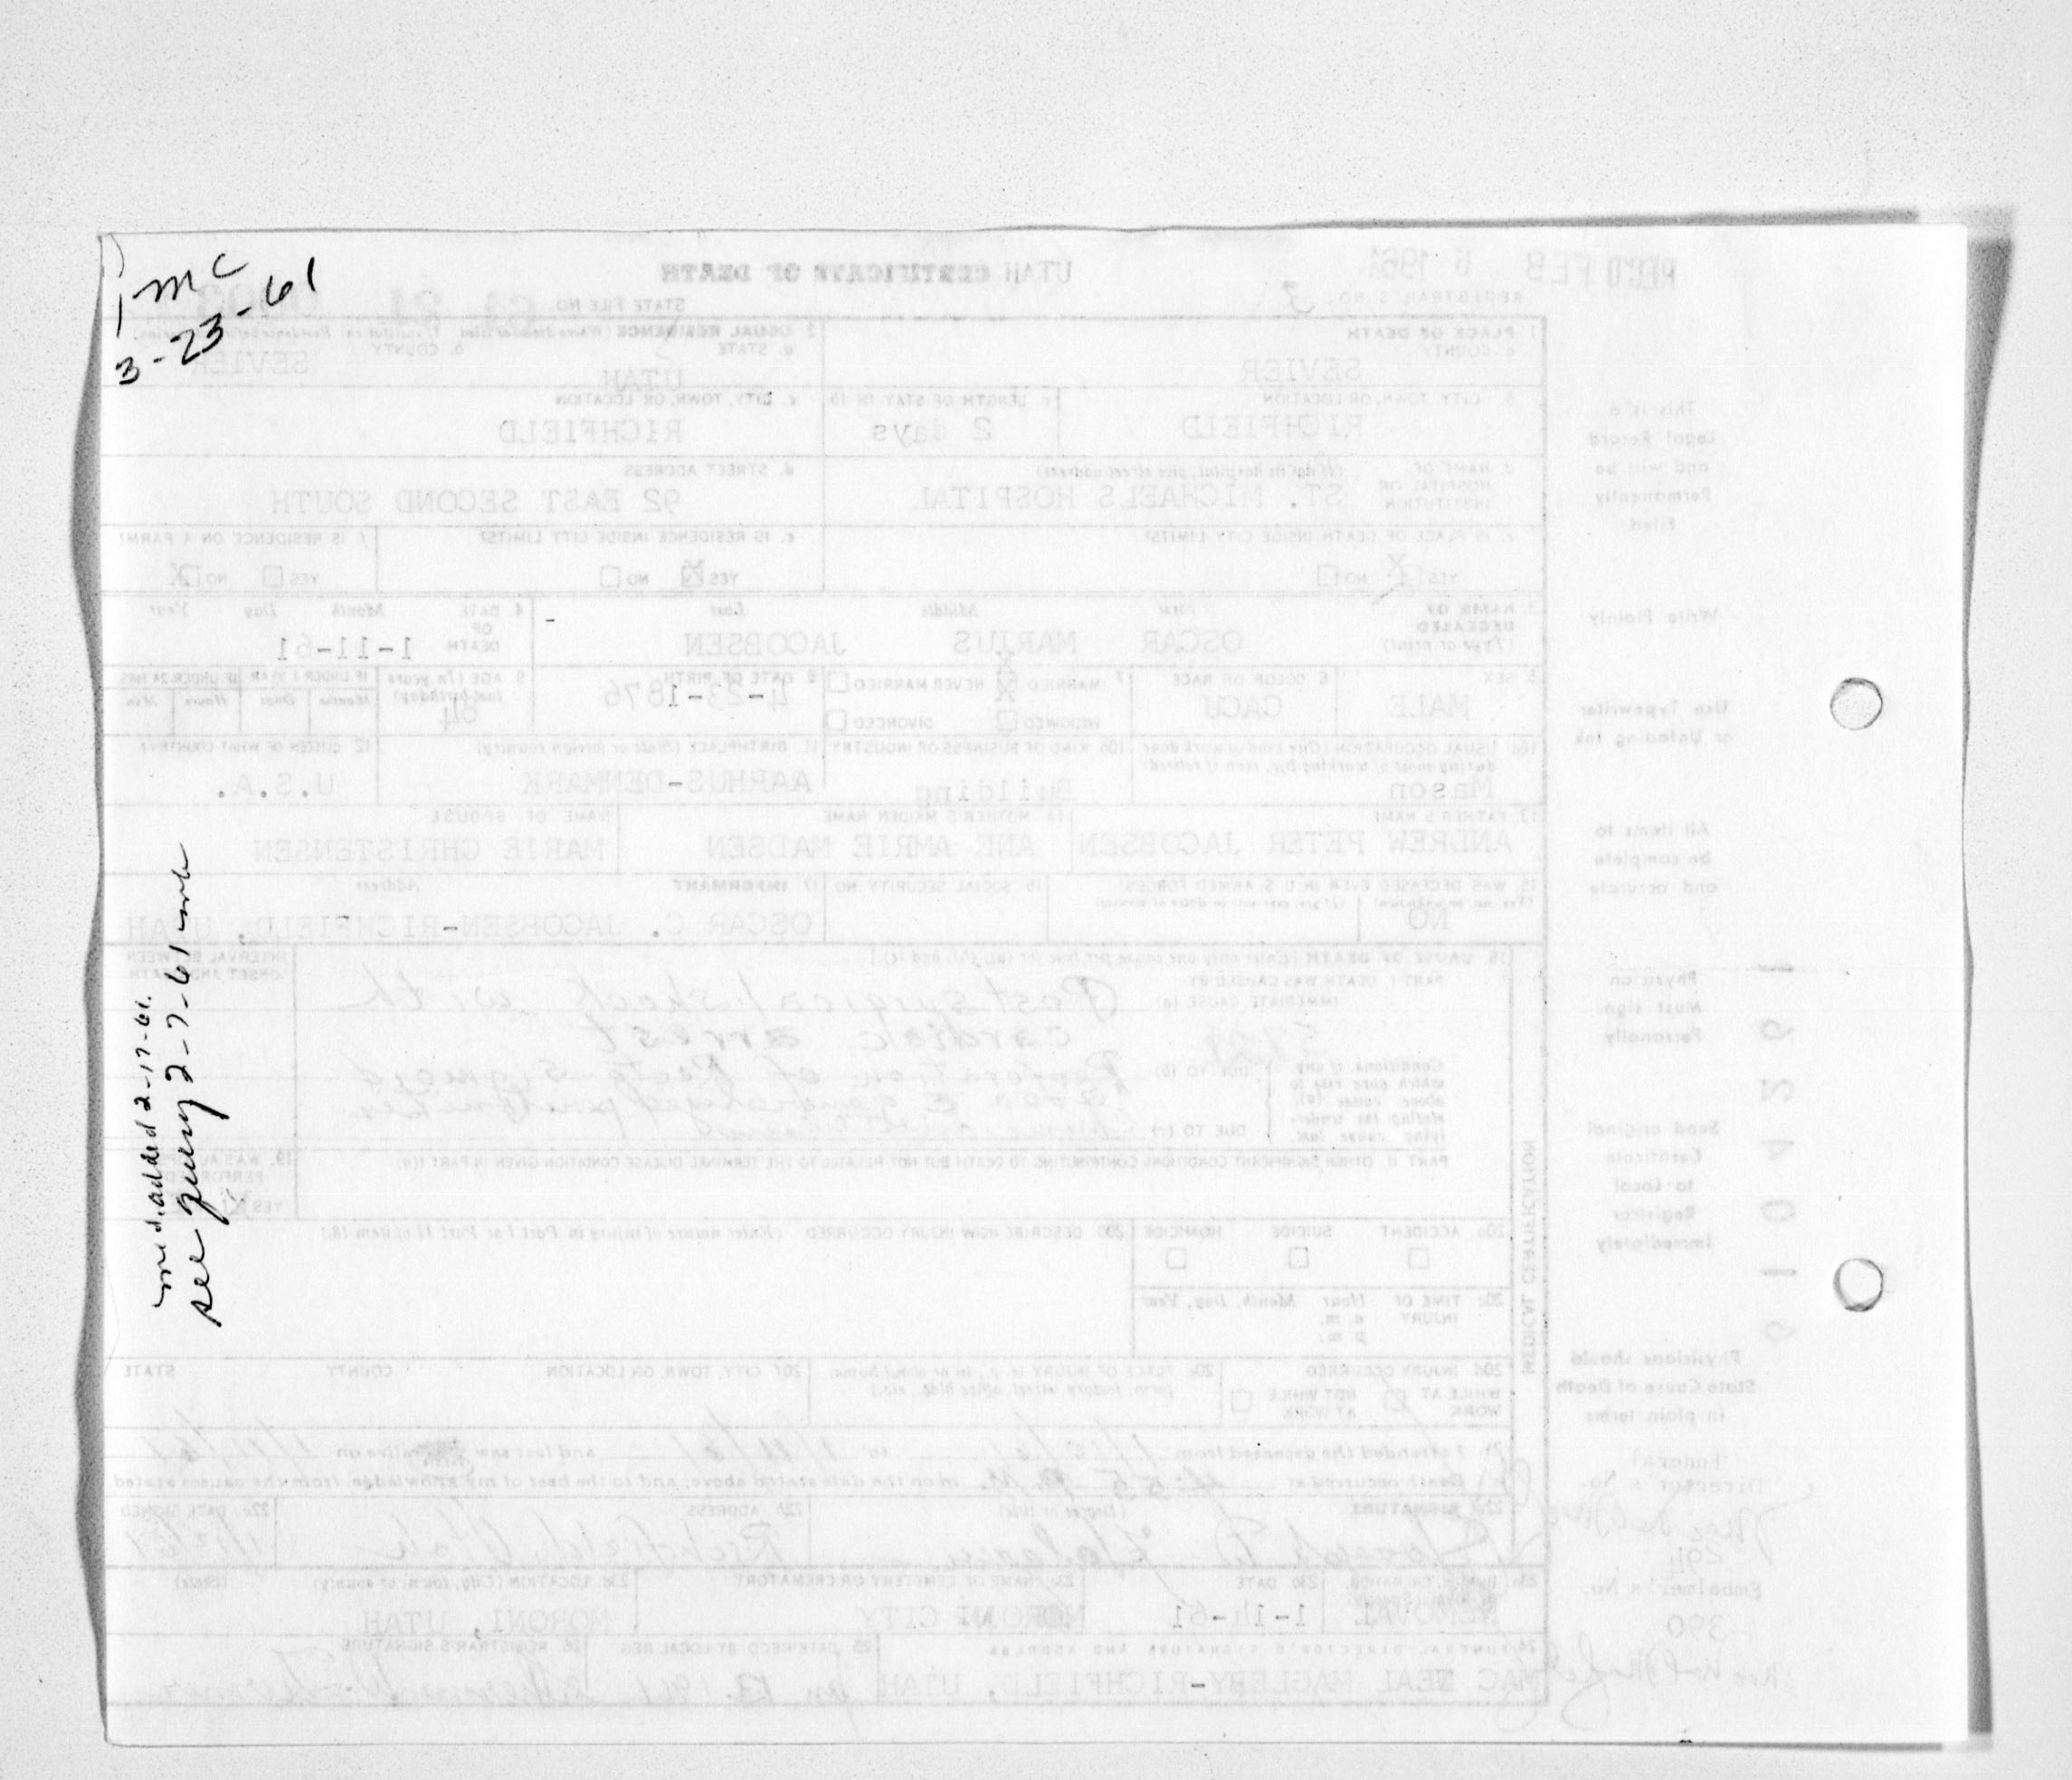 mc
3-23-61
med. added 2-17-61.
see query 2-7-61
UTAH CERTIFICATE OF DEATH
REC'D FEB 6 1961
REGISTRAR'S NO. 3
STATE FILE NO.
1. PLACE OF DEATH
a. COUNTY
SEVIER
2. USUAL RESIDENCE
a. STATE
UTAH
b. COUNTY
SEVIER
b. CITY, TOWN, OR LOCATION
RICHFIELD
c. LENGTH OF STAY IN 1b
2 days
c. CITY, TOWN, OR LOCATION
RICHFIELD
d. NAME OF HOSPITAL OR INSTITUTION
(If not in hospital, give street address)
ST. MICHAELS HOSPITAL
d. STREET ADDRESS
92 EAST SECOND SOUTH
e. IS PLACE OF DEATH INSIDE CITY LIMITS?
YES X NO
e. IS RESIDENCE INSIDE CITY LIMITS?
YES X NO
f. IS RESIDENCE ON A FARM?
YES NO X
3. NAME OF DECEASED
(Type or print)
First Middle Last
OSCAR MARJUS JACOBSEN
4. DATE OF DEATH
Month Day Year
1-11-61
5. SEX
MALE
6. COLOR OR RACE
CACU
7. MARRIED X NEVER MARRIED
WIDOWED DIVORCED
8. DATE OF BIRTH
4-23-1876
9. AGE (In years last birthday)
84
IF UNDER 1 YEAR
Months Days
IF UNDER 24 HRS.
Hours Min.
10a. USUAL OCCUPATION (Give kind of work done during most of working life, even if retired)
Mason
10b. KIND OF BUSINESS OR INDUSTRY
Building
11. BIRTHPLACE (State or foreign country)
AARHUS-DENMARK
12. CITIZEN OF WHAT COUNTRY?
U.S.A.
13. FATHER'S NAME
ANDREW PETER JACOBSEN
14. MOTHER'S MAIDEN NAME
ANE AMRIE MADSEN
NAME OF SPOUSE
MARIE CHRISTENSEN
15. WAS DECEASED EVER IN U.S. ARMED FORCES?
NO
16. SOCIAL SECURITY NO.
17. INFORMANT
Address
OSCAR C. JACOBSEN-RICHFIELD, UTAH
18. CAUSE OF DEATH [Enter only one cause per line for (a), (b), and (c).]
PART I. DEATH WAS CAUSED BY:
IMMEDIATE CAUSE (a)
Post surgical shock with
cardiac arrest
INTERVAL BETWEEN ONSET AND DEATH
Conditions, if any, which gave rise to above cause (a), stating the underlying cause last.
DUE TO (b)
Perforation of Recto-sigmoid
generalized peritonitis
DUE TO (c)
PART II. OTHER SIGNIFICANT CONDITIONS CONTRIBUTING TO DEATH BUT NOT RELATED TO THE TERMINAL DISEASE CONDITION GIVEN IN PART I(a)
MEDICAL CERTIFICATION
20a. ACCIDENT SUICIDE HOMICIDE
20b. DESCRIBE HOW INJURY OCCURRED. (Enter nature of injury in Part I or Part II of item 18.)
20c. TIME OF INJURY
Hour Month, Day, Year
a. m.
p. m.
20d. INJURY OCCURRED
WHILE AT WORK NOT WHILE AT WORK
20e. PLACE OF INJURY (e. g., in or about home, farm, factory, street, office bldg., etc.)
20f. CITY, TOWN, OR LOCATION COUNTY STATE
21. I attended the deceased from to and last saw alive on
Death occurred at 4:55 P.M. m on the date stated above; and to the best of my knowledge, from the causes stated.
22a. SIGNATURE
(Degree or title)
22b. ADDRESS
Richfield, Utah
22c. DATE SIGNED
23a. BURIAL, CREMATION, REMOVAL
23b. DATE
1-14-61
23c. NAME OF CEMETERY OR CREMATORY
MORONI CITY
23d. LOCATION (City, town, or county) (State)
MORONI, UTAH
24. FUNERAL DIRECTOR'S SIGNATURE AND ADDRESS
MAC NEAL MAGLEBY-RICHFIELD, UTAH
25. DATE REC'D BY LOCAL REG.
Jan 13. 1961
26. REGISTRAR'S SIGNATURE
This is a
Legal Record
and will be
Permanently
Filed.
Write Plainly
Use Typewriter
or Unfading Ink
All items to
be complete
and accurate
Physician
Must sign
Personally
Send original
Certificate
to Local
Registrar
Immediately
Physicians should
State Cause of Death
in plain terms
Funeral
Director's No.
294
Embalmer's No.
390